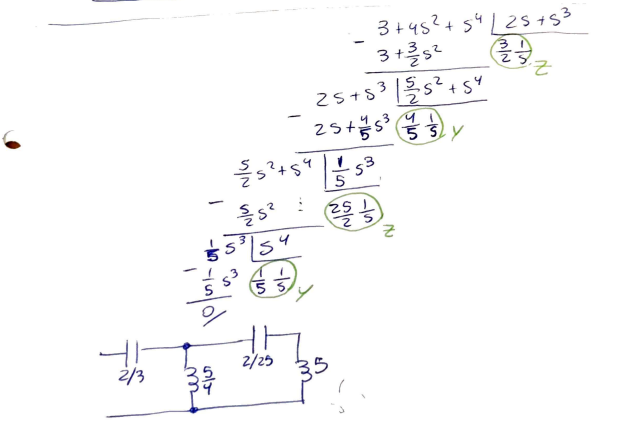 3 + 4s² + s⁴ | 2s + s³
- 3 + 3/2 s² 3/2 1/s z
2s + s³ | 5/2 s² + s⁴
- 2s + 4/5 s³ 4/5 1/s y
5/2 s² + s⁴ | 1/5 s³
- 5/2 s² 25/2 1/s z
1/5 s³ | s⁴
- 1/5 s³ 1/5 1/s y
0
2/3 5/4 2/25 5